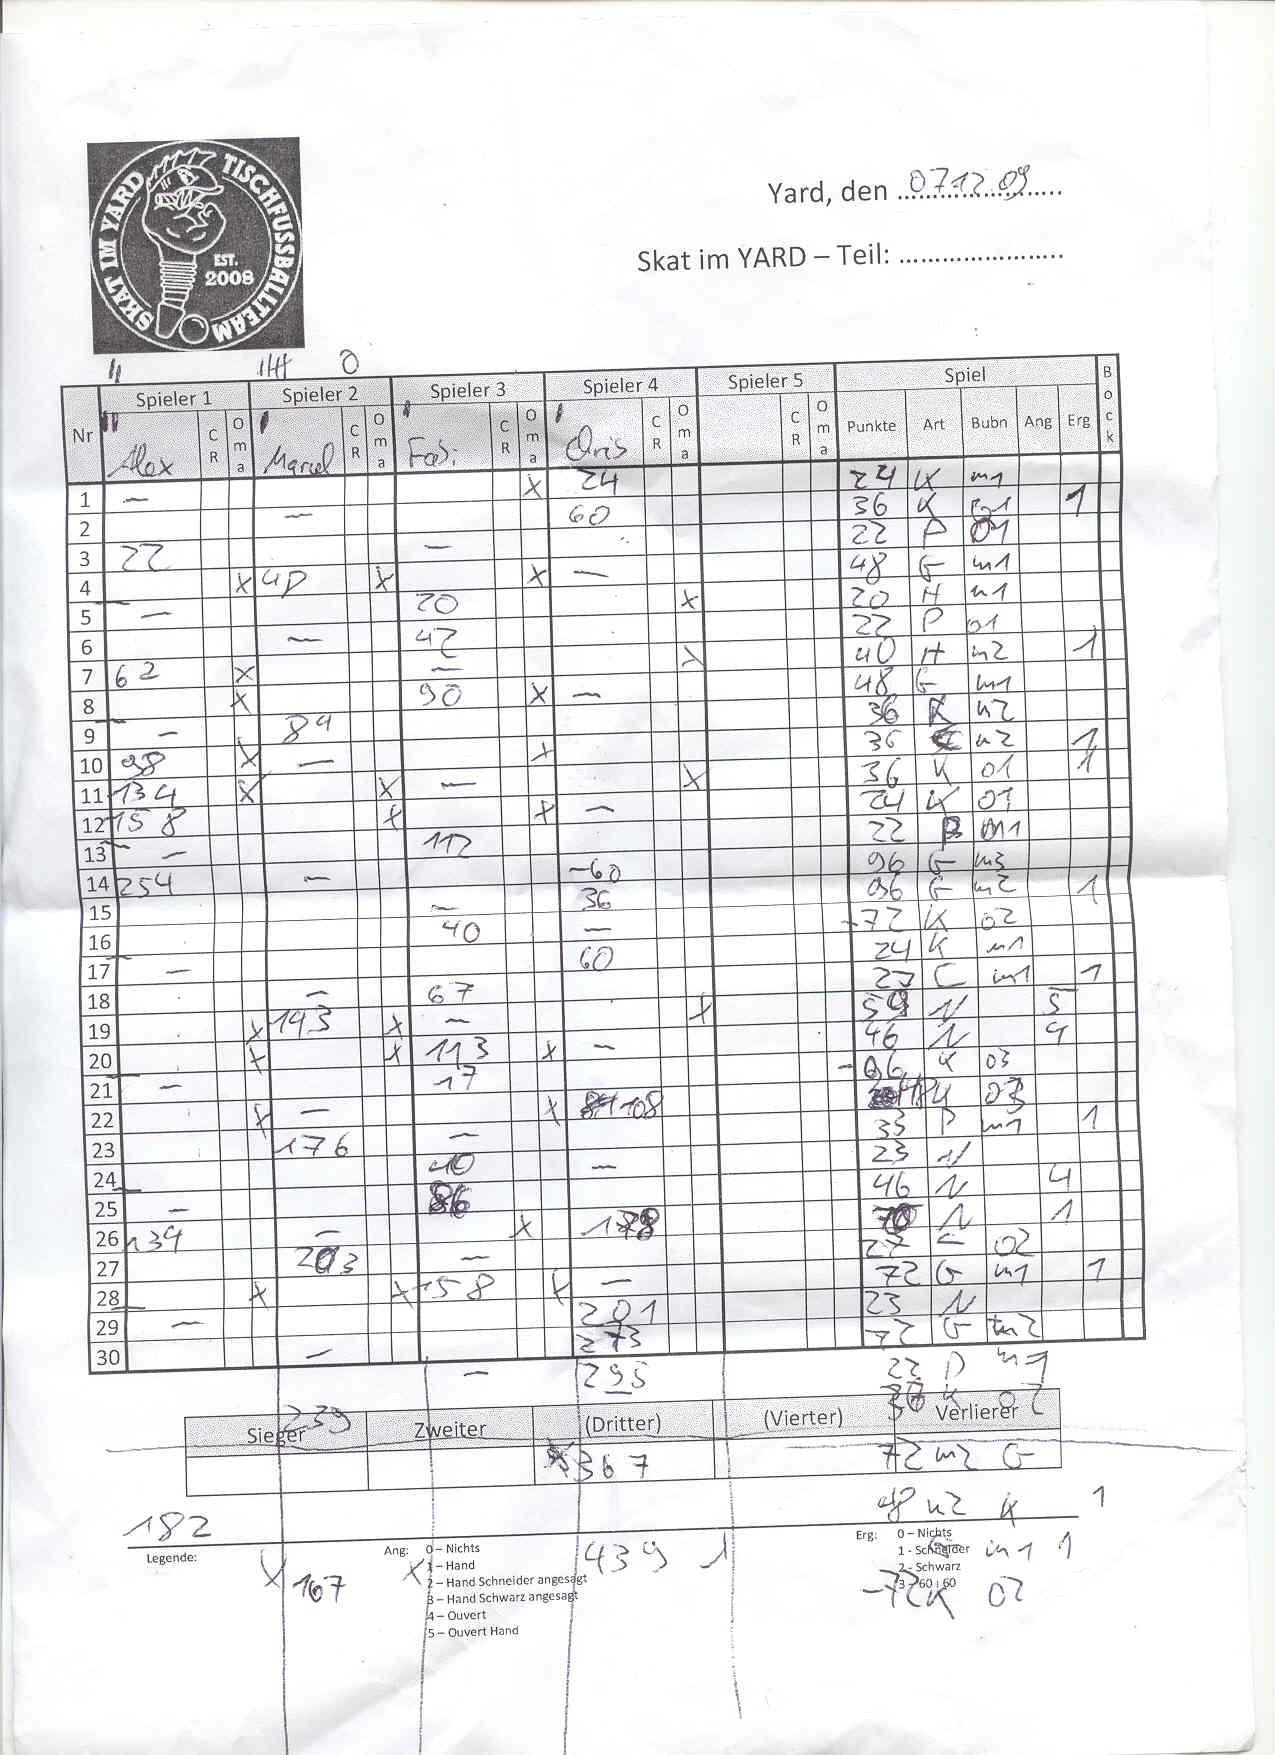 SKAT IM YARD TISCHFUSSBALLTEAM
EST.
2008
Yard, den 07.12.09
Skat im YARD – Teil: ........................
0
Nr Spieler 1 Spieler 2 Spieler 3 Spieler 4 Spieler 5 Spiel Bock
Alex CR Oma Marcel CR Oma Fabi CR Oma Chris CR Oma CR Oma Punkte Art Bubn Ang Erg
1 — x 24 24 K m1
2 — 60 36 K 1
3 22 — 22 P O1
4 x x x — 48 G m1
5 — 20 x 20 H m1
6 — 42 22 P o1
7 62 x — x 40 H m2 1
8 x 90 x — 48 G m1
9 — 84 36 K m2
10 98 x — x 36 m2 1
11 134 x x — x 36 K 01 1
12 158 x x — 24 K 01
13 — 112 22 P m1
14 254 — -60 96 G m3
15 — 36 96 G m2 1
16 40 — -72 K 02
17 — 60 24 K m1
18 — 67 27 C m1 1
19 x 143 x — x 59 N 5
20 x x 113 x — 46 N 4
21 — 17 -96 K 03
22 x — x 108 03
23 176 — 33 P m1 1
24 40 — 23 N
25 — 86 46 N 4
26 134 — x 178 N 1
27 203 — 27 02
28 x x 158 x — 72 G m1 1
29 — 201 23 N
30 — 273 72 G m2
— 295 22 P m1
239 K 02
Sieger Zweiter (Dritter) (Vierter) Verlierer
367 72 m2 G
182 48 m2 K 1
Legende:
Ang: 0 – Nichts
1 – Hand
2 – Hand Schneider angesagt
3 – Hand Schwarz angesagt
4 – Ouvert
5 – Ouvert Hand
Erg: 0 – Nichts
1 - Schneider
2 - Schwarz
3 - 60 : 60
x 167 x 439 m1 1
-72 K 02